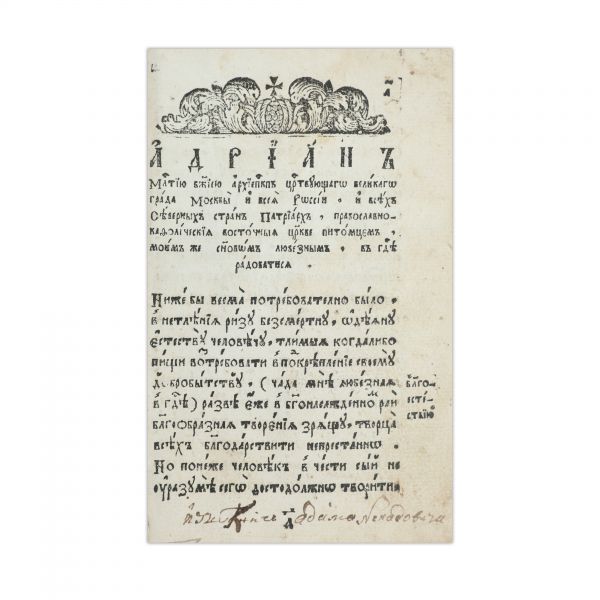 А҆ДРЇА́НЪ
Мл҃тїю бж҃їею а҆рхїепⷭ҇кпъ црⷭ҇твующагѡ великагѡ
града Москвы̀ и҆ всеѧ̀ Рѡссїи , и҆ всѣ́хъ
Сѣ́верныхъ стра́нъ Патрїа́рхъ , православно-
каѳолическїѧ восто́чныѧ цр҃кве пито́мцемъ ,
мои́мъ же сн҃овѡ́мъ любе́знымъ , въ гдⷭ҇ѣ
ра́доватисѧ .
Ниже бы весма̀ потребователно было ,
в нетлѣ́нїѧ ри́зу безсме́ртну , ѡ҆дѣѧну
є҆стеству̀ человѣ́чу , тли́мыѧ когда́либо
пи́щи потре́бовати в покрѣпле́нїе своемꙋ̀
до́бробытствꙋ̀ , ( ча́да мнѣ̀ любе́знаѧ
в гдⷭ҇ѣ ) ра́звѣ є҆́же в бг҃онасажде́нномъ раѝ
бл҃гоѻбра́знаѧ творе́нїѧ зрѧ́щꙋ , творца̀
всѣ́хъ бл҃годарстви́ти непреста́ннѡ .
Но поне́же человѣ́къ в че́сти сы́й не
ᲂу҆разꙋмѣ̀ сегѡ̀ достодо́лжнѡ твори́ти
бл҃го-
че́-
стїю
изъ книгъ Адама